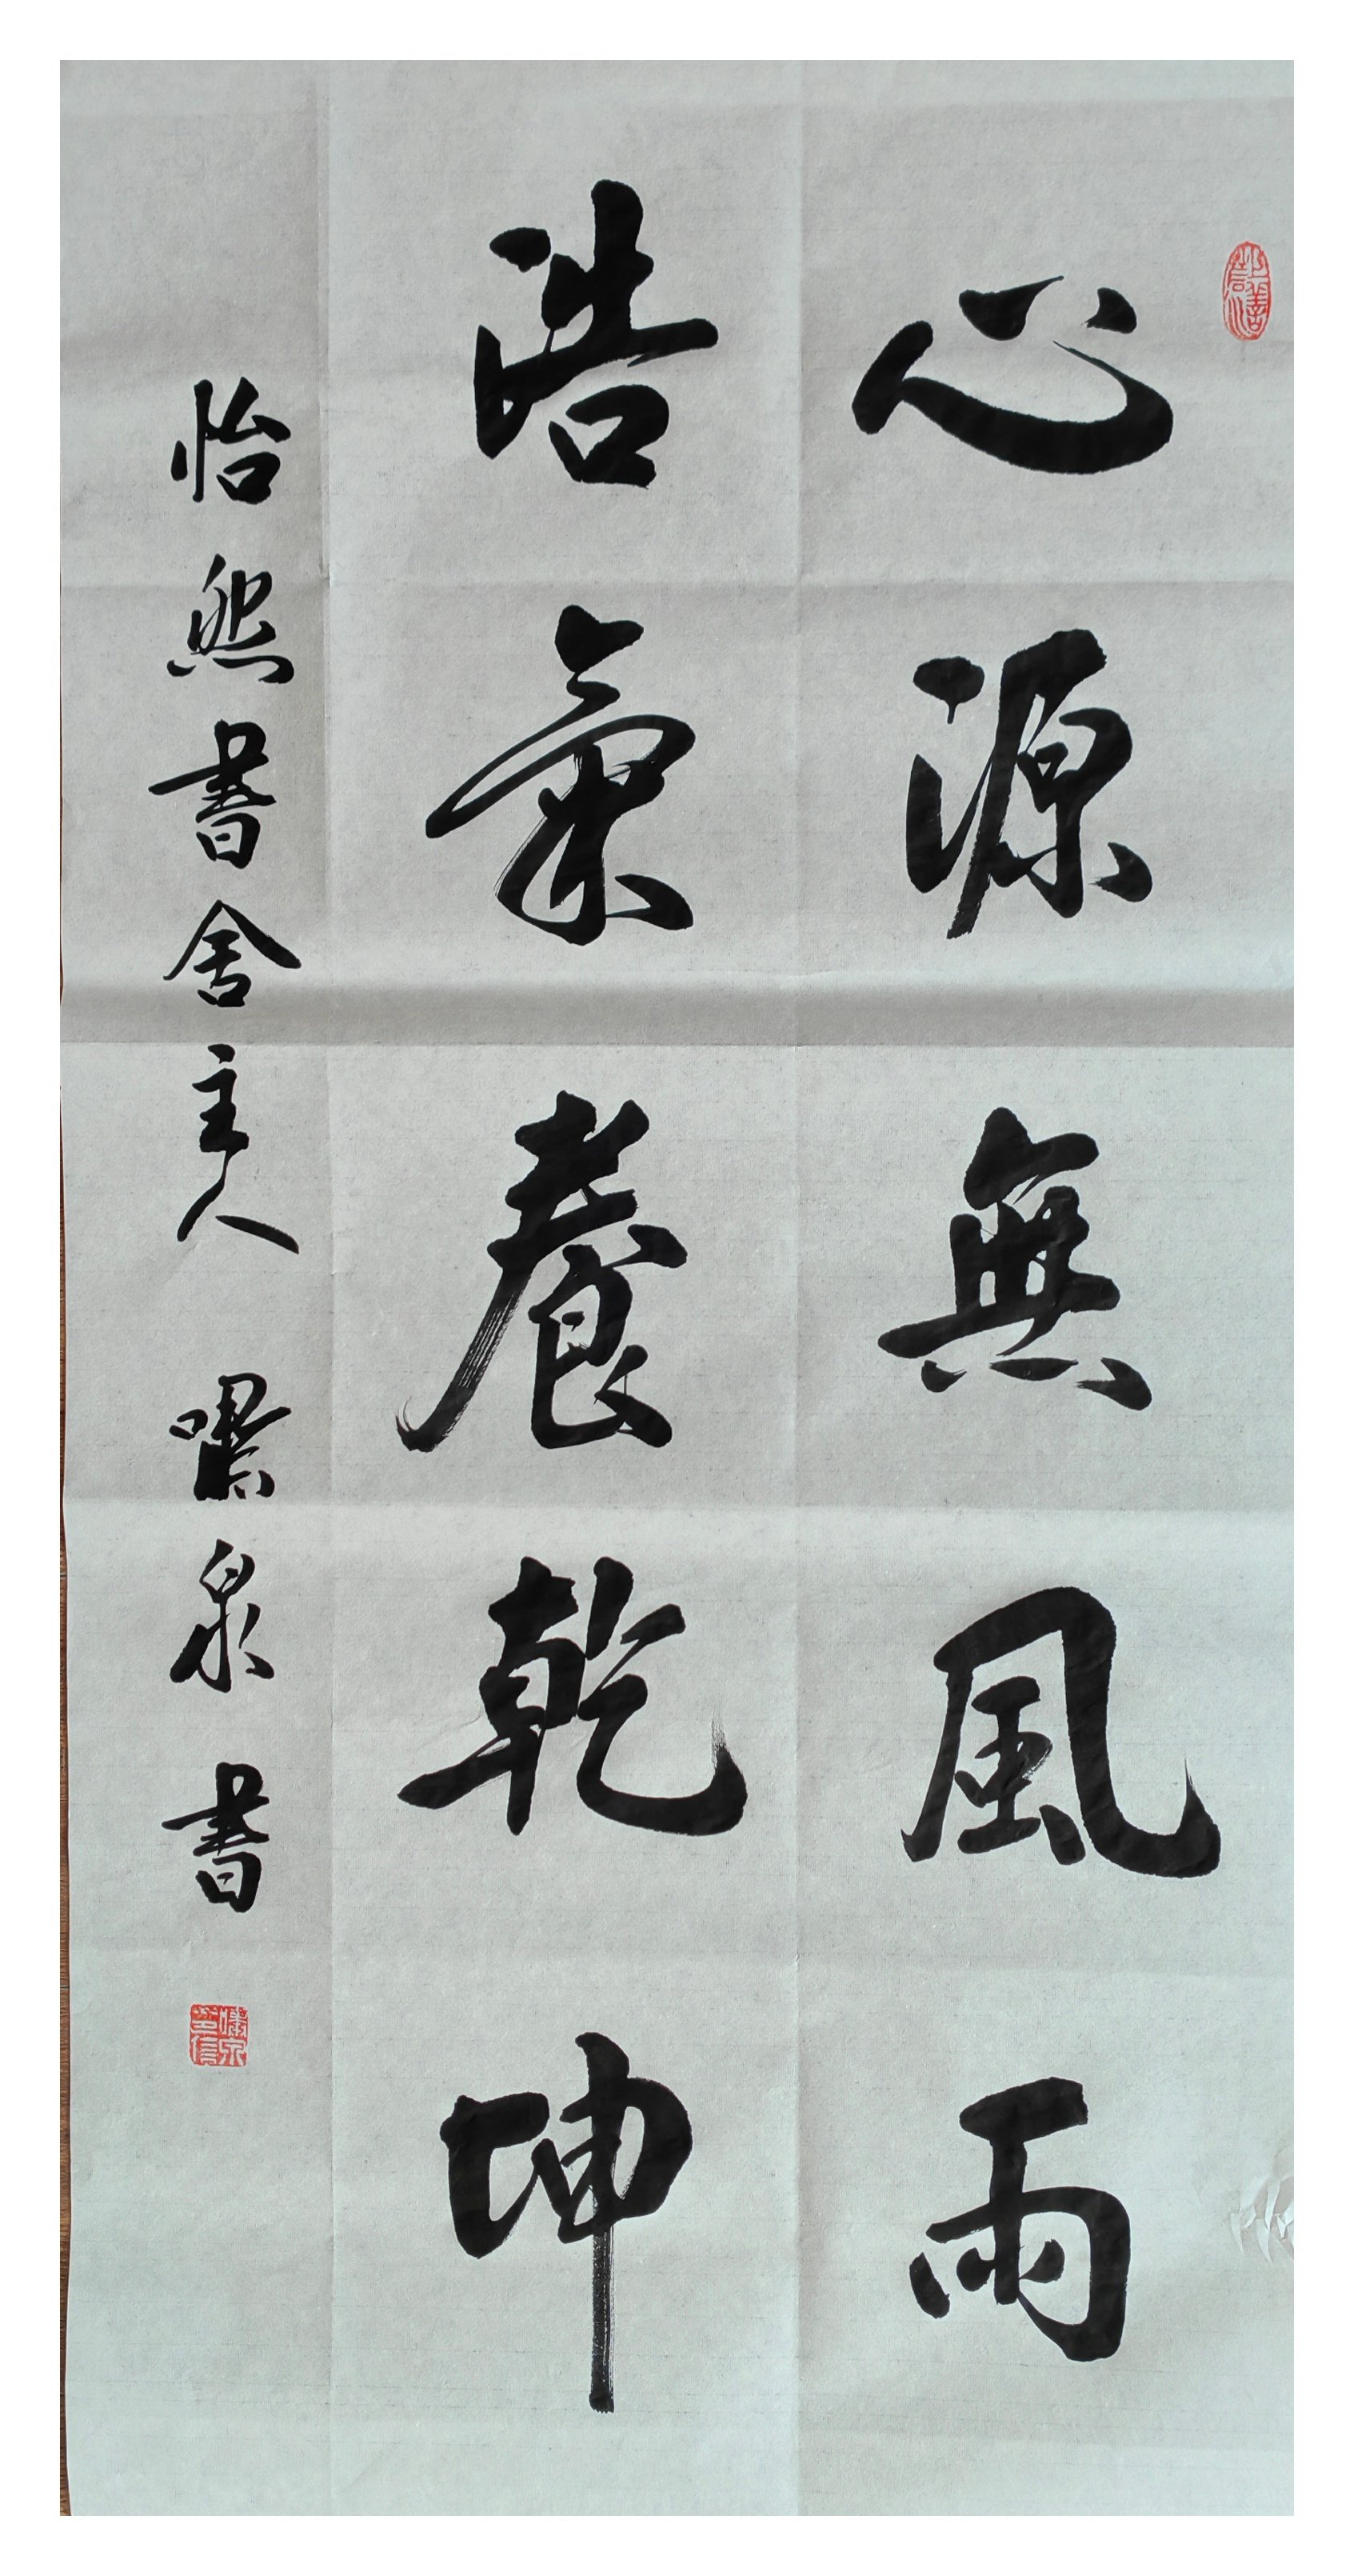 心源無風雨
浩氣養乾坤
怡然書舍主人 嘿泉書